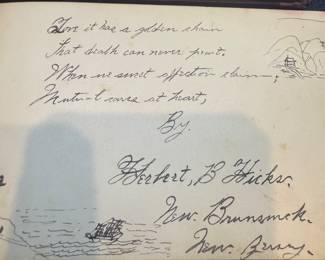 Love it has a golden chain
That death can never part.
When we meet affection claim,
Mutual cares at heart,
By.
Herbert, B Hicks.
New. Brunswick.
New. Jersey.